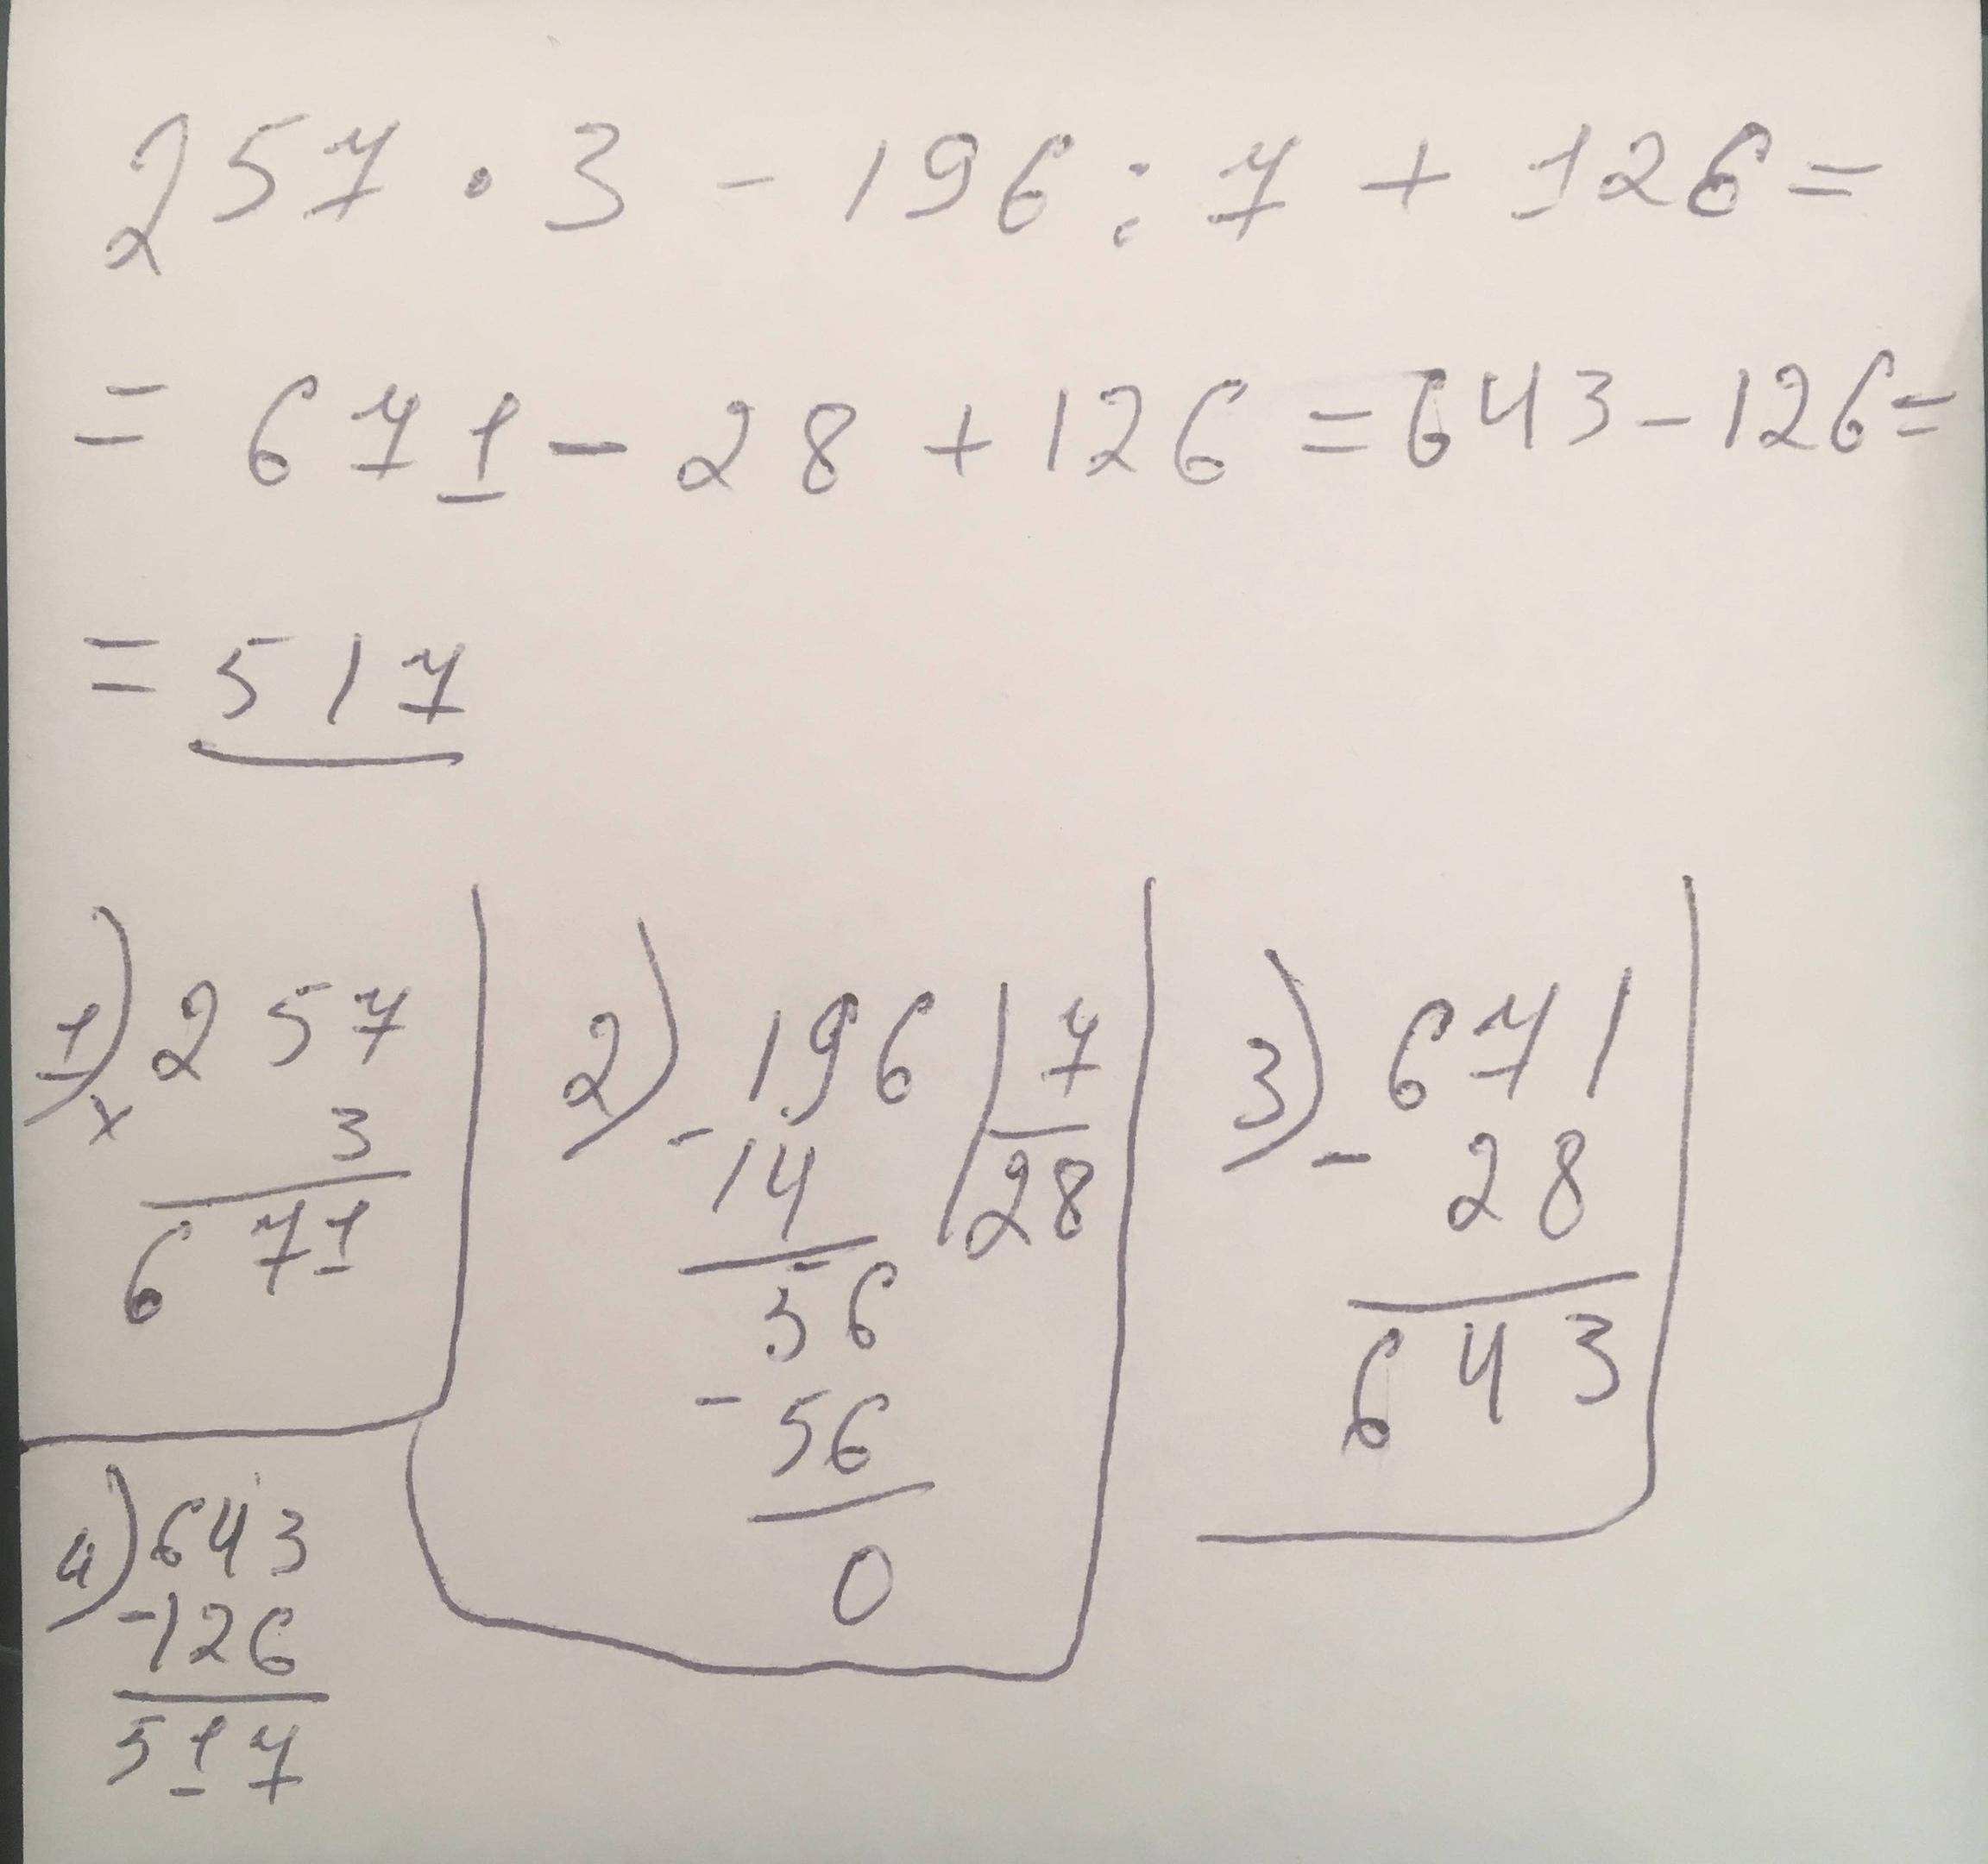 257 · 3 - 196 : 7 + 126 =
= 671 - 28 + 126 = 643 - 126 =
= 517
1) 257
× 3
671
2) 196 | 7
- 14 | 28
56
- 56
0
3) 671
- 28
643
4) 643
- 126
517